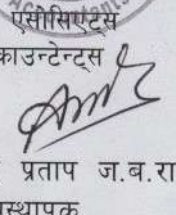 एसोसिएट्स
काउन्टेन्ट्स
प्रताप ज.ब.रा
स्थापक